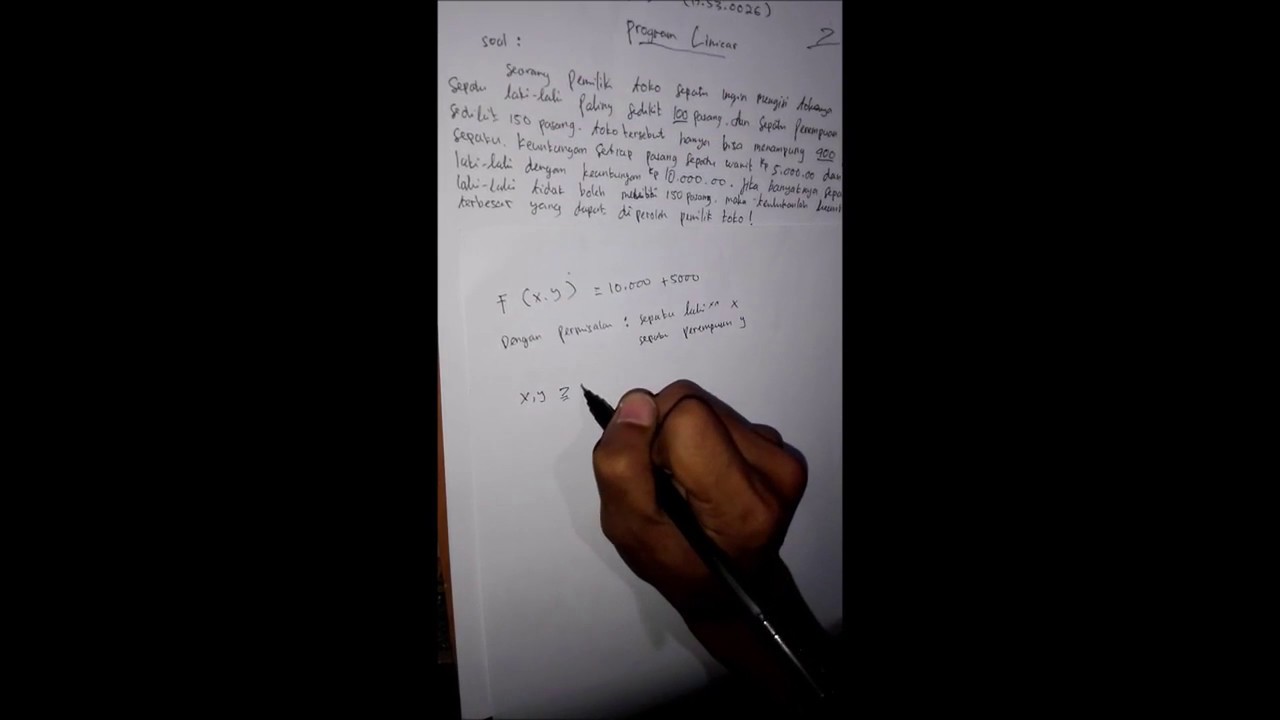 (17.53.0026)
Program Linicar
2
soal :
Seorang Pemilik toko sepatu ingin mengisi tokonya
Sepatu laki-laki paling sedikit 100 pasang, dan sepatu Perempuan
sedikit 150 pasang. toko tersebut hanya bisa menampung 400
sepatu. Keuntungan setiap pasang sepatu wanit Rp 5.000.00 dan
laki-laki dengan keuntungan Rp 10.000.00. Jika banyaknya sepa
laki-laki tidak boleh melebihi 150 pasang. maka tentukanlah
terbesar yang dapat diperoleh pemilik toko!
F (x.y) = 10.000 + 5000
Dengan permisalan : sepatu laki x
sepatu perempuan y
x,y ≥